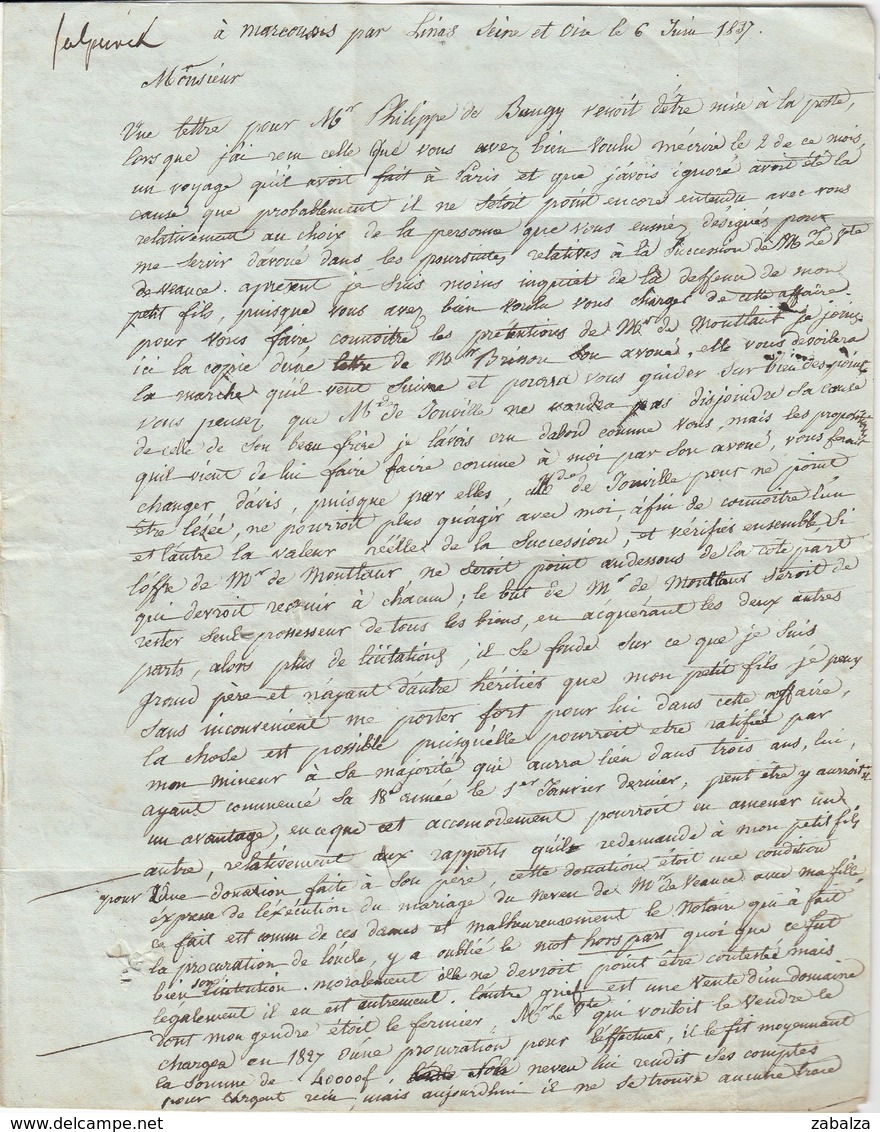 à marcoussis par Linas Seine et Oise le 6 Juin 1837.
Monsieur
Une lettre pour Mr Philippe de Baugy venoit d'être mise à la poste,
lorsque j'ai recu celle que vous avez bien voulu mécrire le 2 de ce mois,
un voyage qu'il avoit fait à Paris et que j'avois ignoré avoit été la
cause que probablement il ne s'étoit point encore entendu avec vous
relativement au choix de la personne que vous eussiez désignés pour
me servir davoué dans les poursuites relatives à la succession de Mr Le Vte
de veauce. apresent je suis moins inquiet de la deffence de mon
petit fils, puisque vous avez bien voulu vous charger de cette affaire
pour vous faire connoître les pretentions de Mr de Montlaur je joins
ici la copie d'une lettre de Mr son avoué, elle vous devoilera
la marche qu'il veut suivre et pourra vous guider sur bien des points
vous pensez que Mde de Jouville ne voudra pas disjoindre sa cause
de celle de son beau frère je lavois cru dabord comme vous, mais les propositions
qu'il vient de lui faire faire comme à moi par son avoué, vous feront
changer d'avis, puisque par elles, Mde de Jouville pour ne point
être lezée, ne pourroit plus qu'agir avec moi, afin de connoitre l'un
et l'autre la valeur réelle de la succession, et vérifier ensemble, si
l'offre de Mr de Montlaur ne seroit point au dessous de la cote part
qui devroit revenir à chacun; le but de Mr de Montlaur seroit de
rester seul possesseur de tous les biens, en acquérant les deux autres
parts, alors plus de licitations, il se fonde sur ce que je suis
grand père et n'ayant d'autre héritier que mon petit fils je peux
sans inconvenient me porter fort pour lui dans cette affaire,
la chose est possible puisquelle pourroit etre ratifiée par
mon mineur à sa majorité qui aurra lieu dans trois ans, lui,
ayant commencé sa 18e année le 1er Janvier dernier, peut être y aurroit il
un avantage, en ce que cet accomodement pourroit en amener un
autre, relativement aux rapports qu'ils redemande à mon petit fils
pour Une donation faite à son père, cette donation étoit une condition
expresse de l'exécution du mariage du neveu de Mr de Veauce avec ma fille,
ce fait est connu de ces dames et malheureusement le Notaire qui à fait
la procuration de l'oncle, y a oublié le mot hors part quoi que ce fut
bien son l'intention. moralement elle ne devroit point être contestée mais
légalement il en est autrement. l'autre grief est une vente d'un domaine
dont mon gendre étoit le fermier, Mr Le Vte qui vouloit le vendre le
chargea en 1827 d'une procuration pour l'effectuer, il le fit moyennant
la somme de 40000f neveu lui rendit ses comptes
pour l'argent recu, mais aujourdhui il ne se trouve aucune trace
zabalza